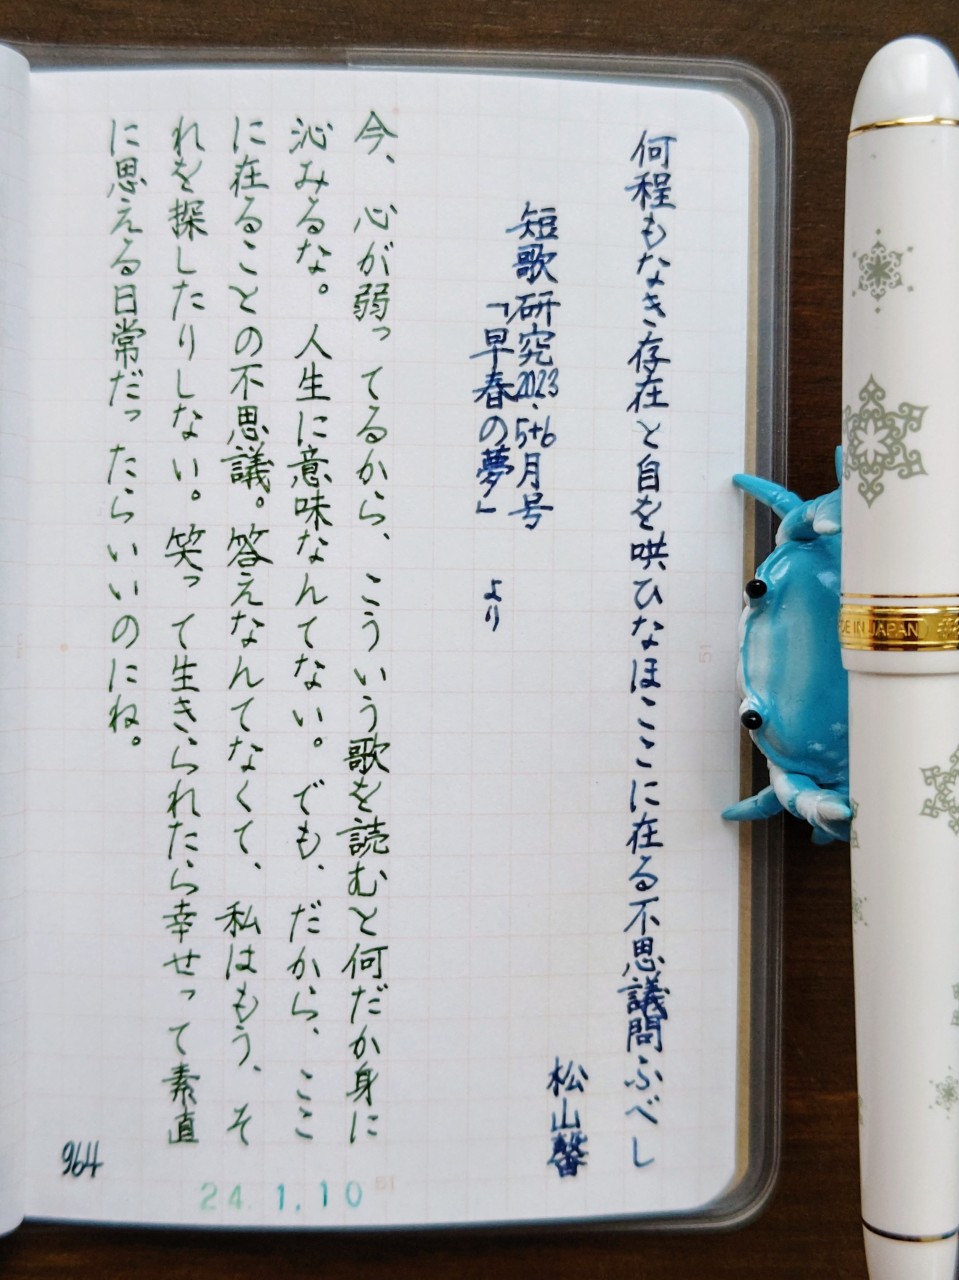 何程もなき存在と自を哄ひなほここに在る不思議問ふべし
松山馨
短歌研究2023.5+6月号
「早春の夢」 より
今、心が弱ってるから、こういう歌を読むと何だか身に
沁みるな。人生に意味なんてない。でも、だから、ここ
に在ることの不思議。答えなんてなくて、私はもう、そ
れを探したりしない。笑って生きられたら幸せって素直
に思える日常だったらいいのにね。
964
24.1.10
51
51
DE IN JAPAN